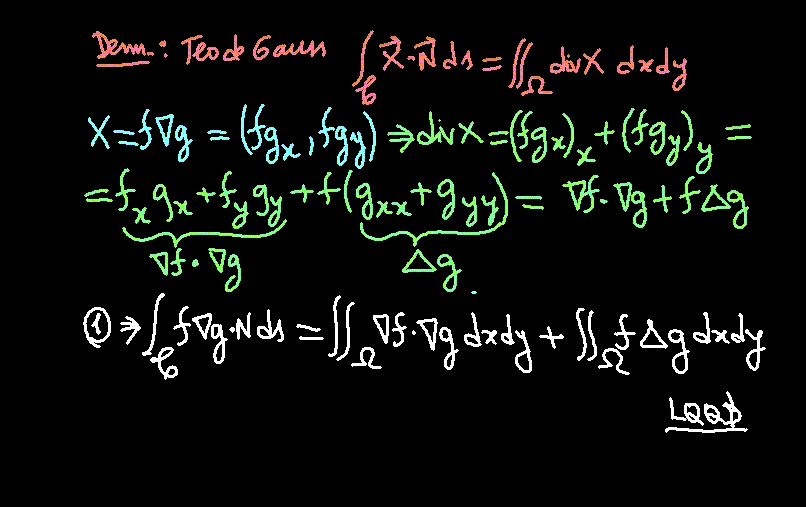 Dem.: Teo de Gauss ∫_C X⃗·N⃗ ds = ∬_Ω div X dxdy
X = f∇g = (fg_x, fg_y) ⇒ div X = (fg_x)_x + (fg_y)_y =
= f_x g_x + f_y g_y + f(g_xx + g_yy) = ∇f·∇g + fΔg
∇f·∇g Δg
① ⇒ ∫_C f∇g·N ds = ∬_Ω ∇f·∇g dxdy + ∬_Ω fΔg dxdy
LQQD